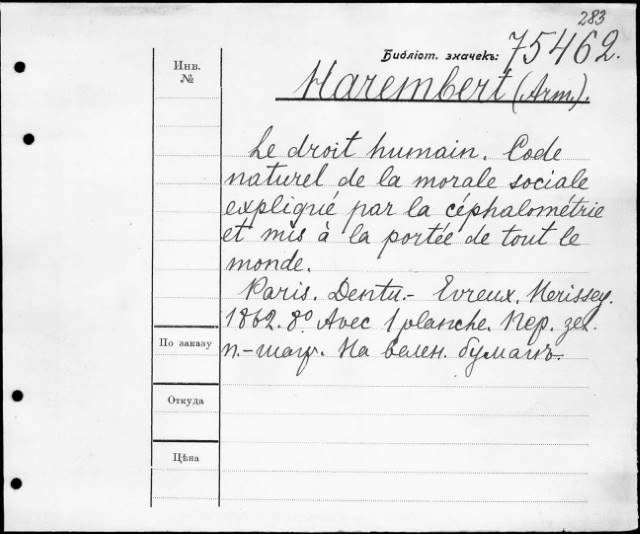 283
Библіот. значекъ: 75462.
Инв.
№
Harembert (Arm.).
Le droit humain. Code
naturel de la morale sociale
expliqué par la céphalométrie
et mis à la portée de tout le
monde.
Paris. Dentu.- Evreux. Herissey.
1862. 8° Avec 1 planche. Пер. зел.
п.-шагр. На велен. бумагѣ.
По заказу
Откуда
Цѣна